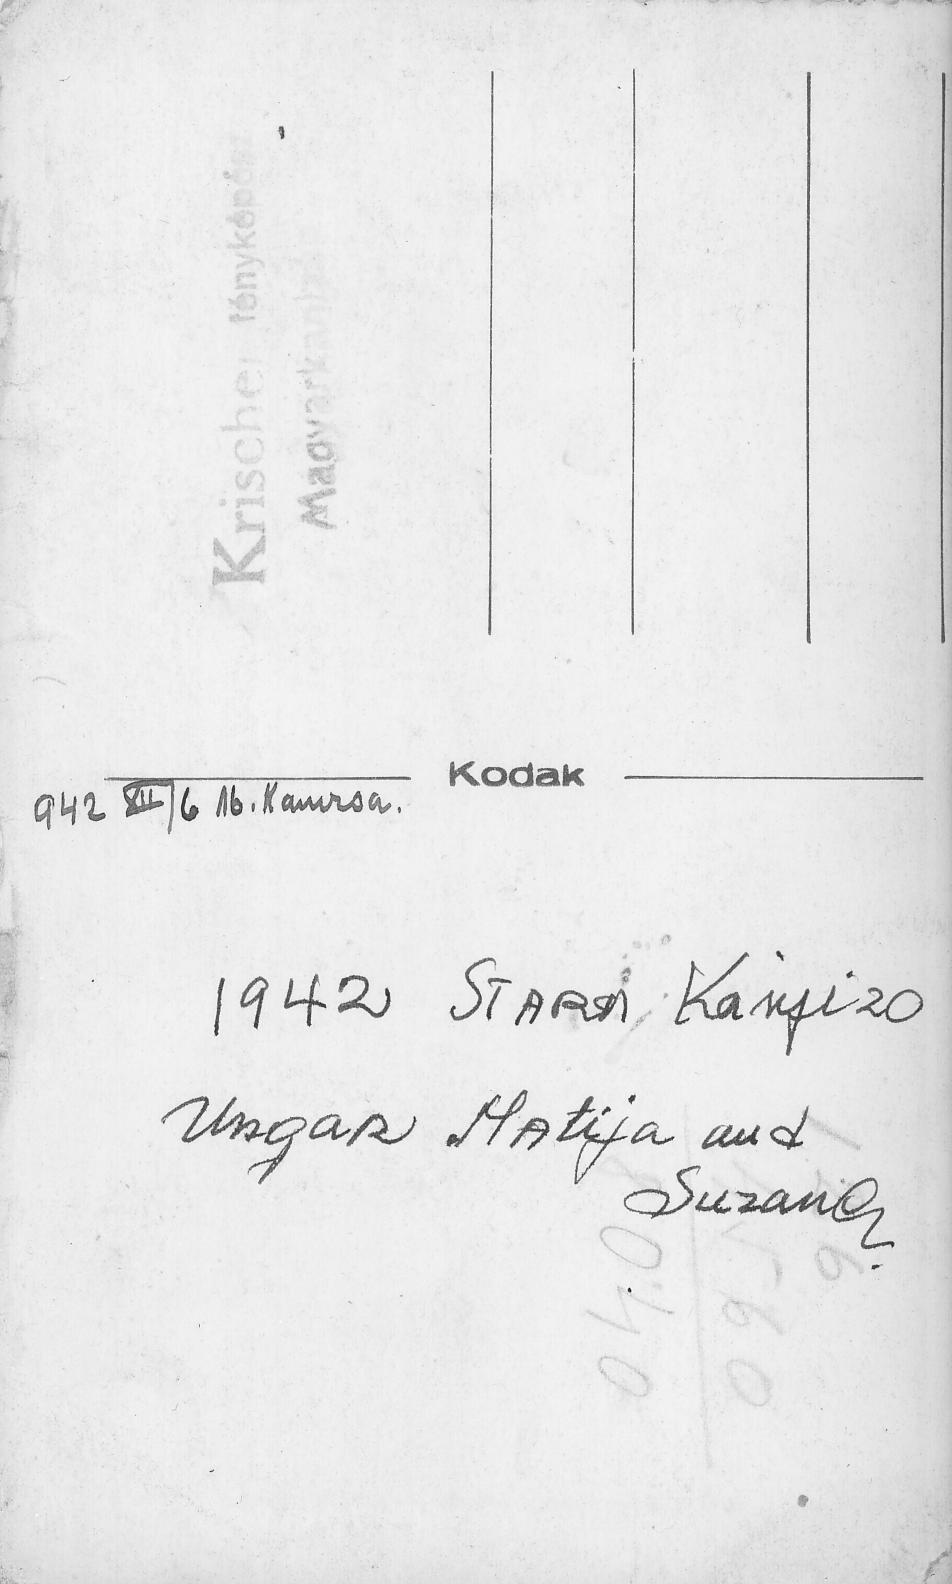 Krischer fényképész
Magyarkanizsa
Kodak
942 XII/6 M. Kanizsa.
1942 STARA Kanjizo
Ungar Matija and
Suzana